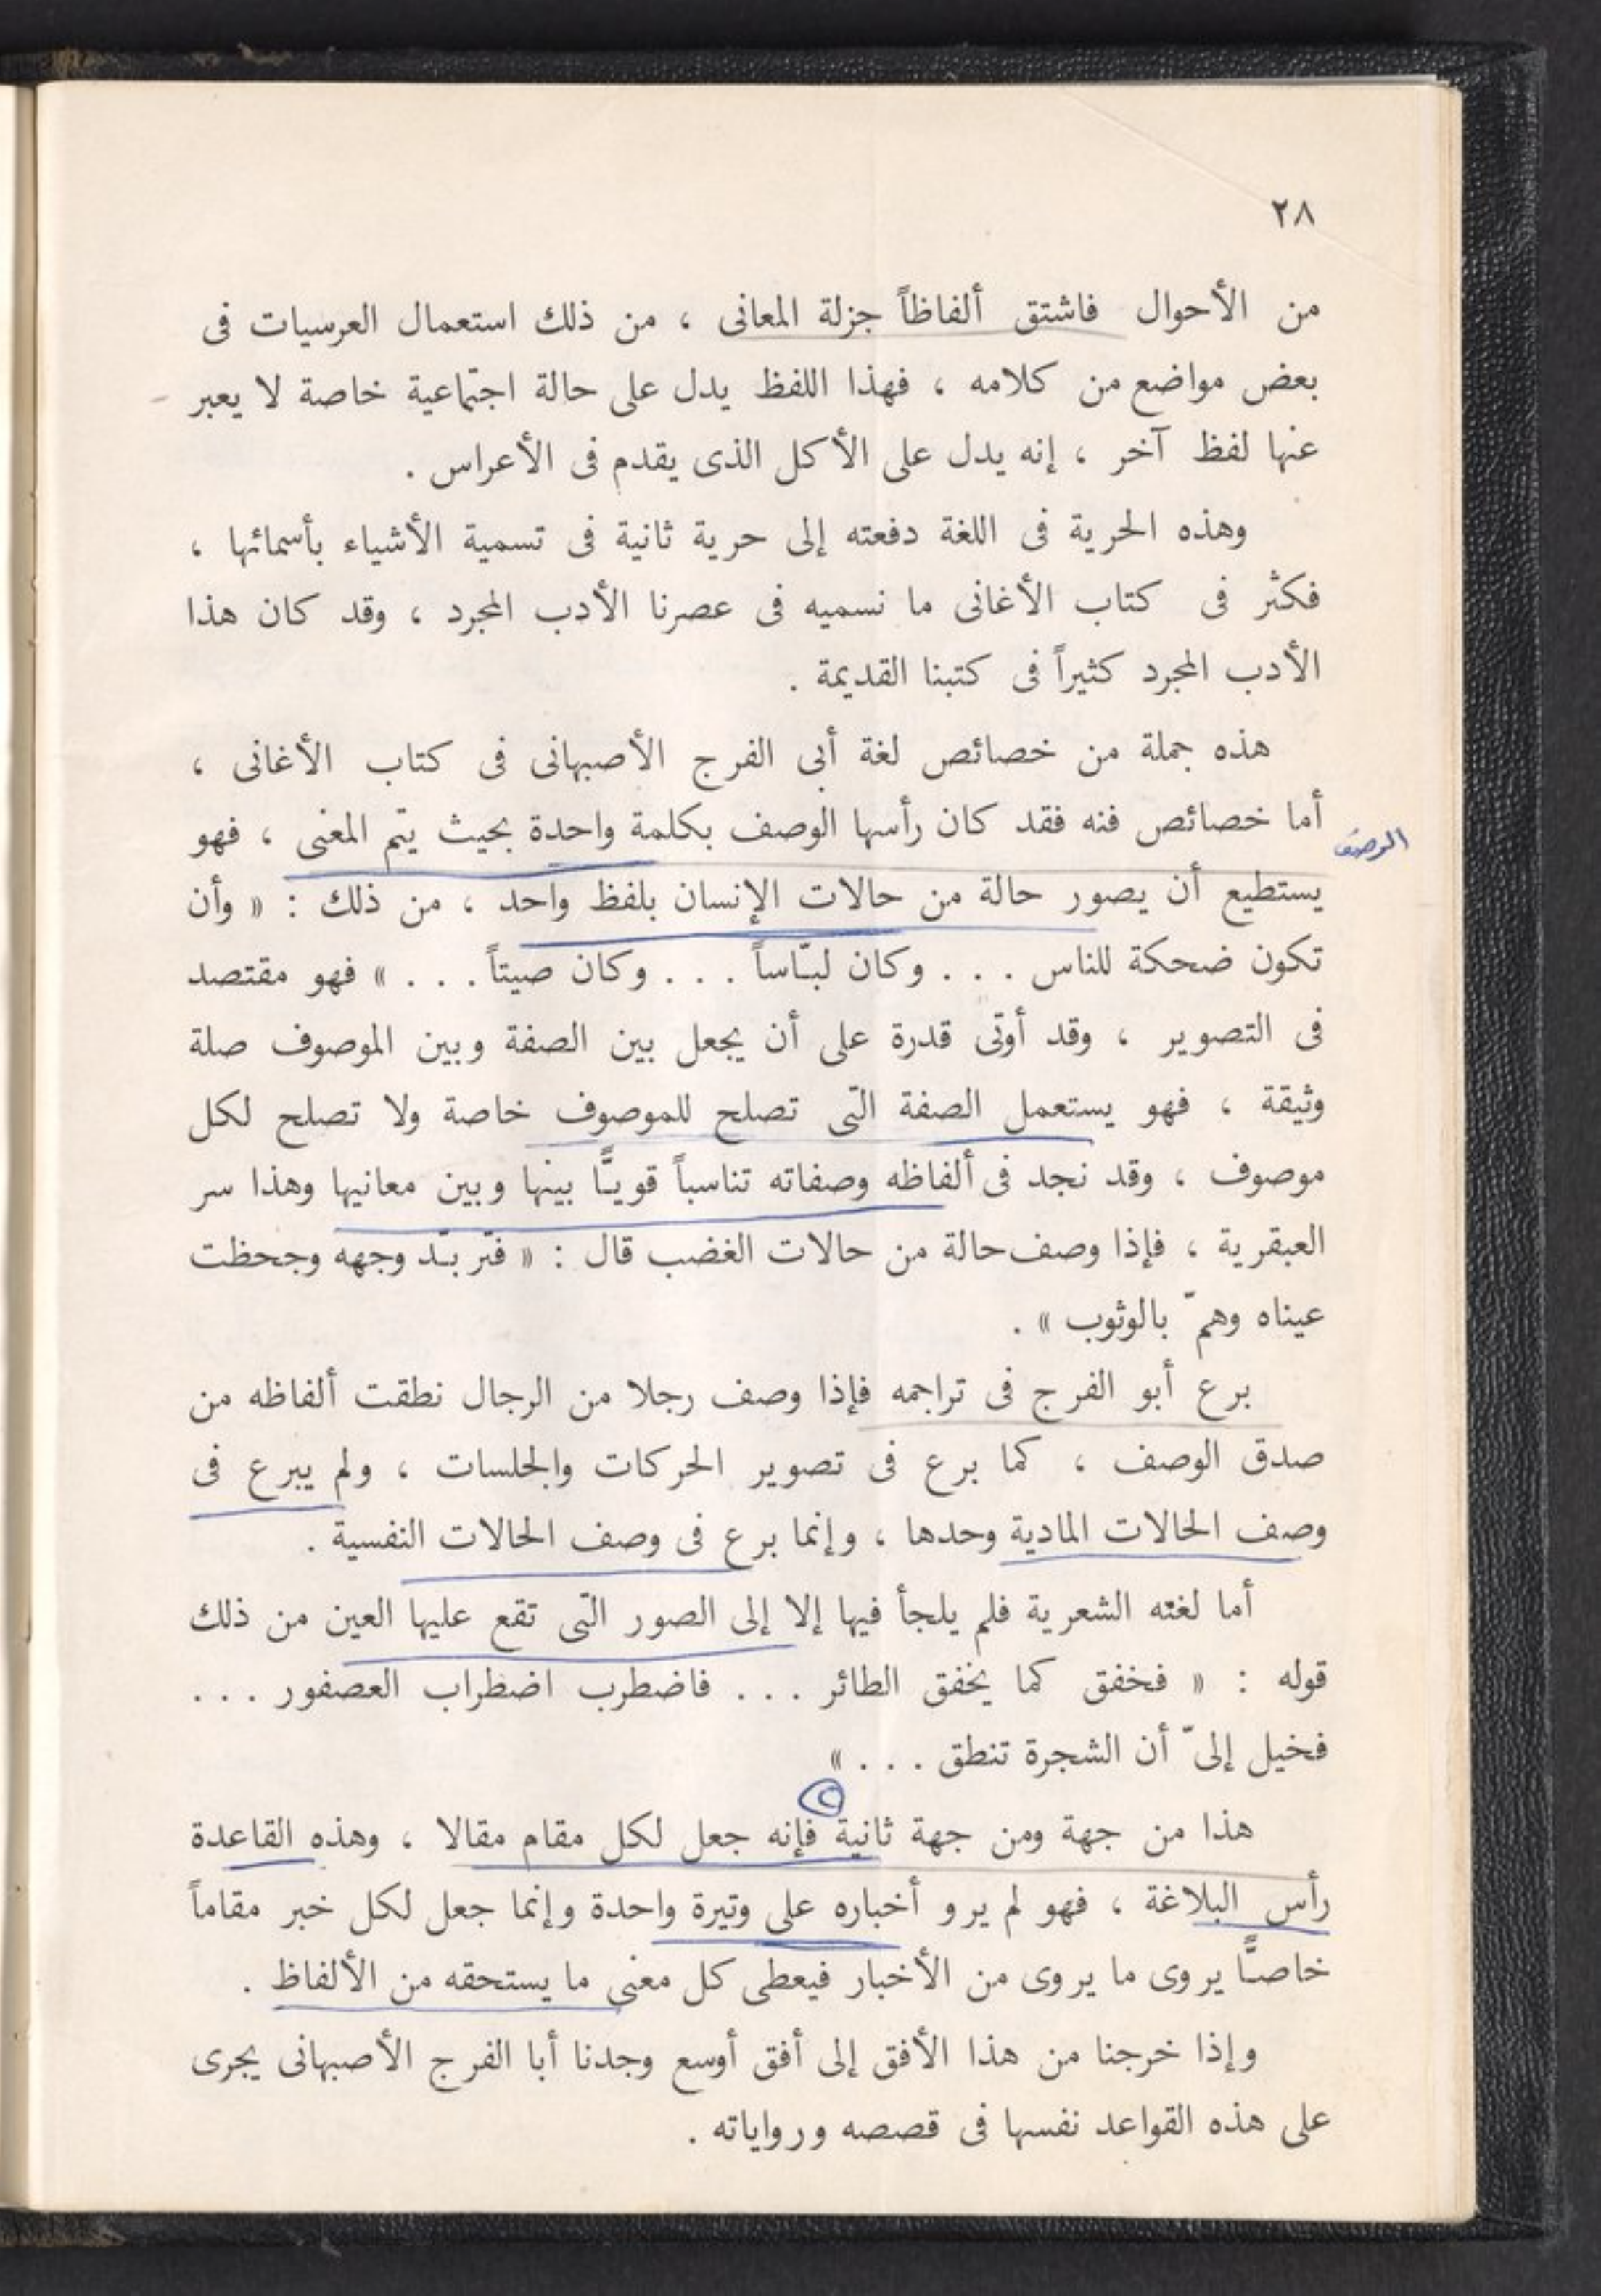 ٢٨
من الأحوال فاشتق ألفاظاً جزلة المعانى ، من ذلك استعمال العرسيات فى
بعض مواضع من كلامه ، فهذا اللفظ يدل على حالة اجتماعية خاصة لا يعبر
عنها لفظ آخر ، إنه يدل على الأكل الذى يقدم فى الأعراس .
وهذه الحرية فى اللغة دفعته إلى حرية ثانية فى تسمية الأشياء بأسمائها ،
فكثر فى كتاب الأغانى ما نسميه فى عصرنا الأدب المجرد ، وقد كان هذا
الأدب المجرد كثيراً فى كتبنا القديمة .
هذه جملة من خصائص لغة أبى الفرج الأصبهانى فى كتاب الأغانى ،
أما خصائص فنه فقد كان رأسها الوصف بكلمة واحدة بحيث يتم المعنى ، فهو
الوصف
يستطيع أن يصور حالة من حالات الإنسان بلفظ واحد ، من ذلك : « وأن
تكون ضحكة للناس . . . وكان لبّاساً . . . وكان صيتاً . . . » فهو مقتصد
فى التصوير ، وقد أوتى قدرة على أن يجعل بين الصفة وبين الموصوف صلة
وثيقة ، فهو يستعمل الصفة التى تصلح للموصوف خاصة ولا تصلح لكل
موصوف ، وقد نجد فى ألفاظه وصفاته تناسباً قويًّا بينها وبين معانيها وهذا سر
العبقرية ، فإذا وصف حالة من حالات الغضب قال : « فتربّد وجهه وجحظت
عيناه وهمّ بالوثوب » .
برع أبو الفرج فى تراجمه فإذا وصف رجلا من الرجال نطقت ألفاظه من
صدق الوصف ، كما برع فى تصوير الحركات والجلسات ، ولم يبرع فى
وصف الحالات المادية وحدها ، وإنما برع فى وصف الحالات النفسية .
أما لغته الشعرية فلم يلجأ فيها إلا إلى الصور التى تقع عليها العين من ذلك
قوله : « فخفق كما يخفق الطائر . . . فاضطرب اضطراب العصفور . . .
فخيل إلىّ أن الشجرة تنطق . . . »
هذا من جهة ومن جهة ثانية فإنه جعل لكل مقام مقالا ، وهذه القاعدة
رأس البلاغة ، فهو لم يرو أخباره على وتيرة واحدة وإنما جعل لكل خبر مقاماً
خاصًّا يروى ما يروى من الأخبار فيعطى كل معنى ما يستحقه من الألفاظ .
وإذا خرجنا من هذا الأفق إلى أفق أوسع وجدنا أبا الفرج الأصبهانى يجرى
على هذه القواعد نفسها فى قصصه ورواياته .